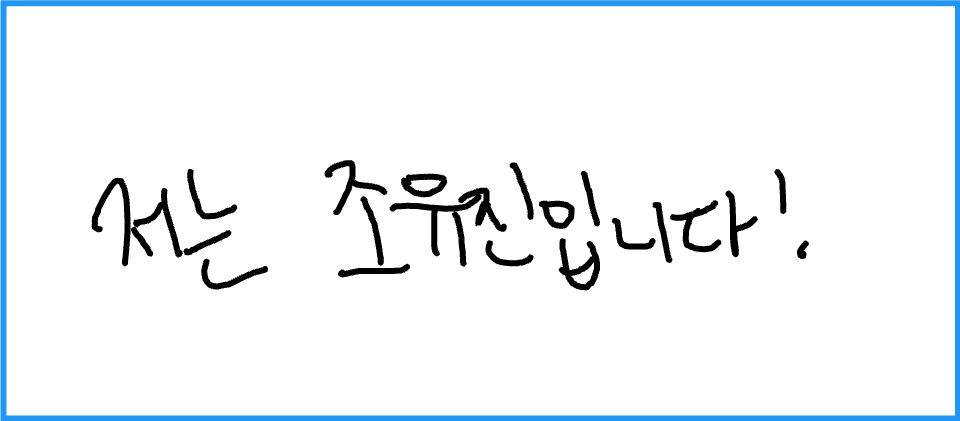 저는 조유진입니다!